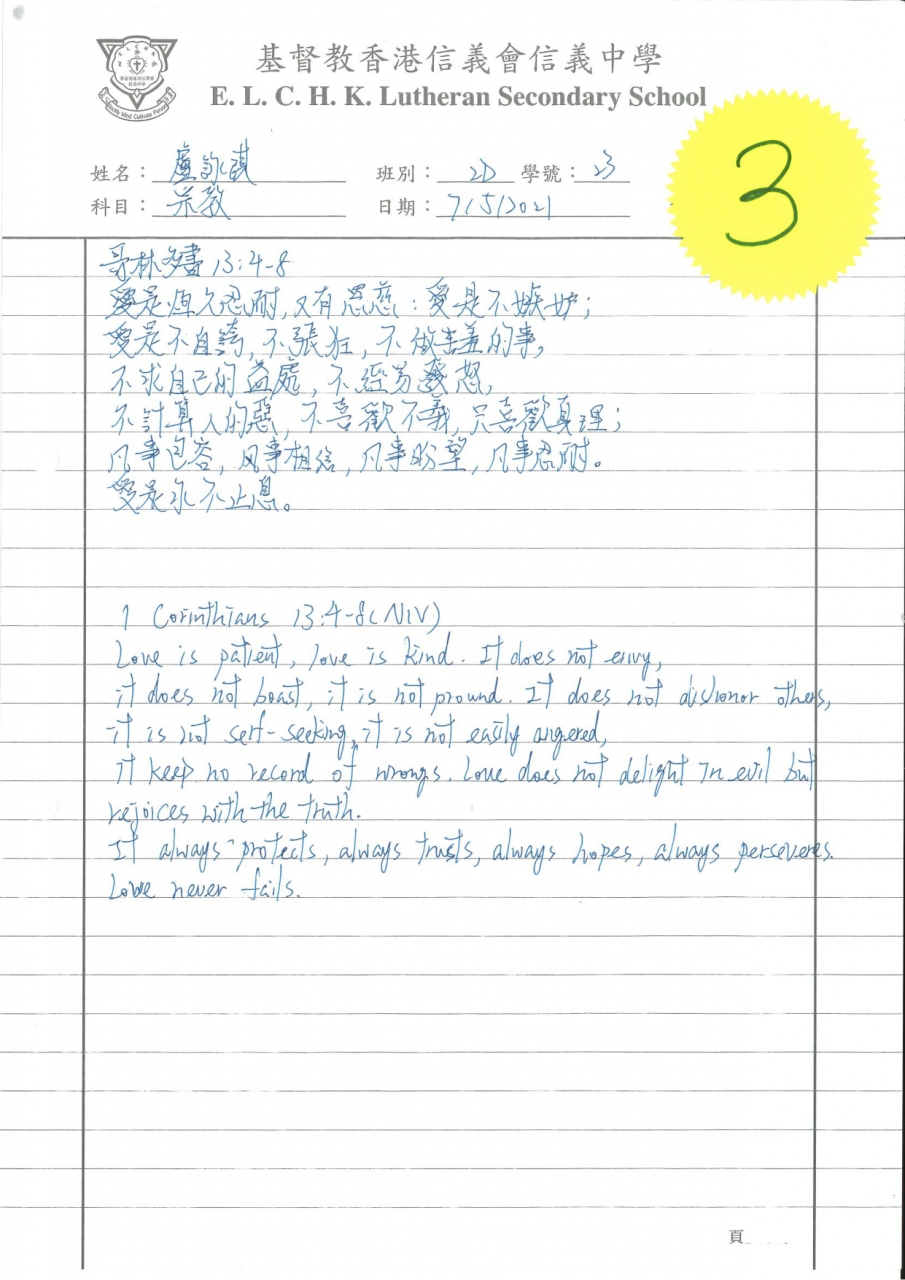 基督教香港信義會信義中學
E. L. C. H. K. Lutheran Secondary School
3
姓名： 盧詠琪 班別： 2D 學號： 23
科目： 宗教 日期： 7/5/2021
哥林多書 13:4-8
愛是恆久忍耐，又有恩慈：愛是不嫉妒；
愛是不自誇，不張狂，不做害羞的事，
不求自己的益處，不經易發怒，
不計算人的惡，不喜歡不義，只喜歡真理；
凡事包容，凡事相信，凡事盼望，凡事忍耐。
愛是永不止息。
1 Corinthians 13:4-8(NIV)
Love is patient, love is kind. It does not envy,
it does not boast, it is not pround. It does not dishonor others,
it is not serf-seeking, it is not easily angered,
it keep no record of wrongs. Love does not delight in evil but
rejoices with the truth.
It always protects, always trusts, always hopes, always perseveres.
Love never fails.
頁